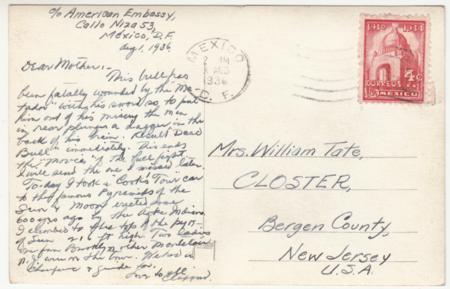 c/o American Embassy,
Calle Niza 53,
Mexico, D.F.
Aug 1, 1936
Dear Mother:-
This bull has
been fatally wounded by the Ma-
tador with his sword so to put
him out of his misery the men
in rear plunge a dagger in the
back of his brain. Result Dead
Bull immediately. This ends
the "movie" of the bull fight
I will send the one I missed later.
Today I took a Cook's Tour car
to the famous Pyramids of the
Sun & Moon erected over
600 yrs ago by the Aztec Indians
I climbed to the top of the pyr.
of Sun 216 ft high. Two ladies
one from Brooklyn other Montclair
N.J. were on the tour. We had a
chauffeur & guide
Love to all
Clifford.
MEXICO
1936
D. F.
1910 1934
4c
CORREOS
MEXICO
Mrs. William Tate,
CLOSTER,
Bergen County,
New Jersey
U.S.A.